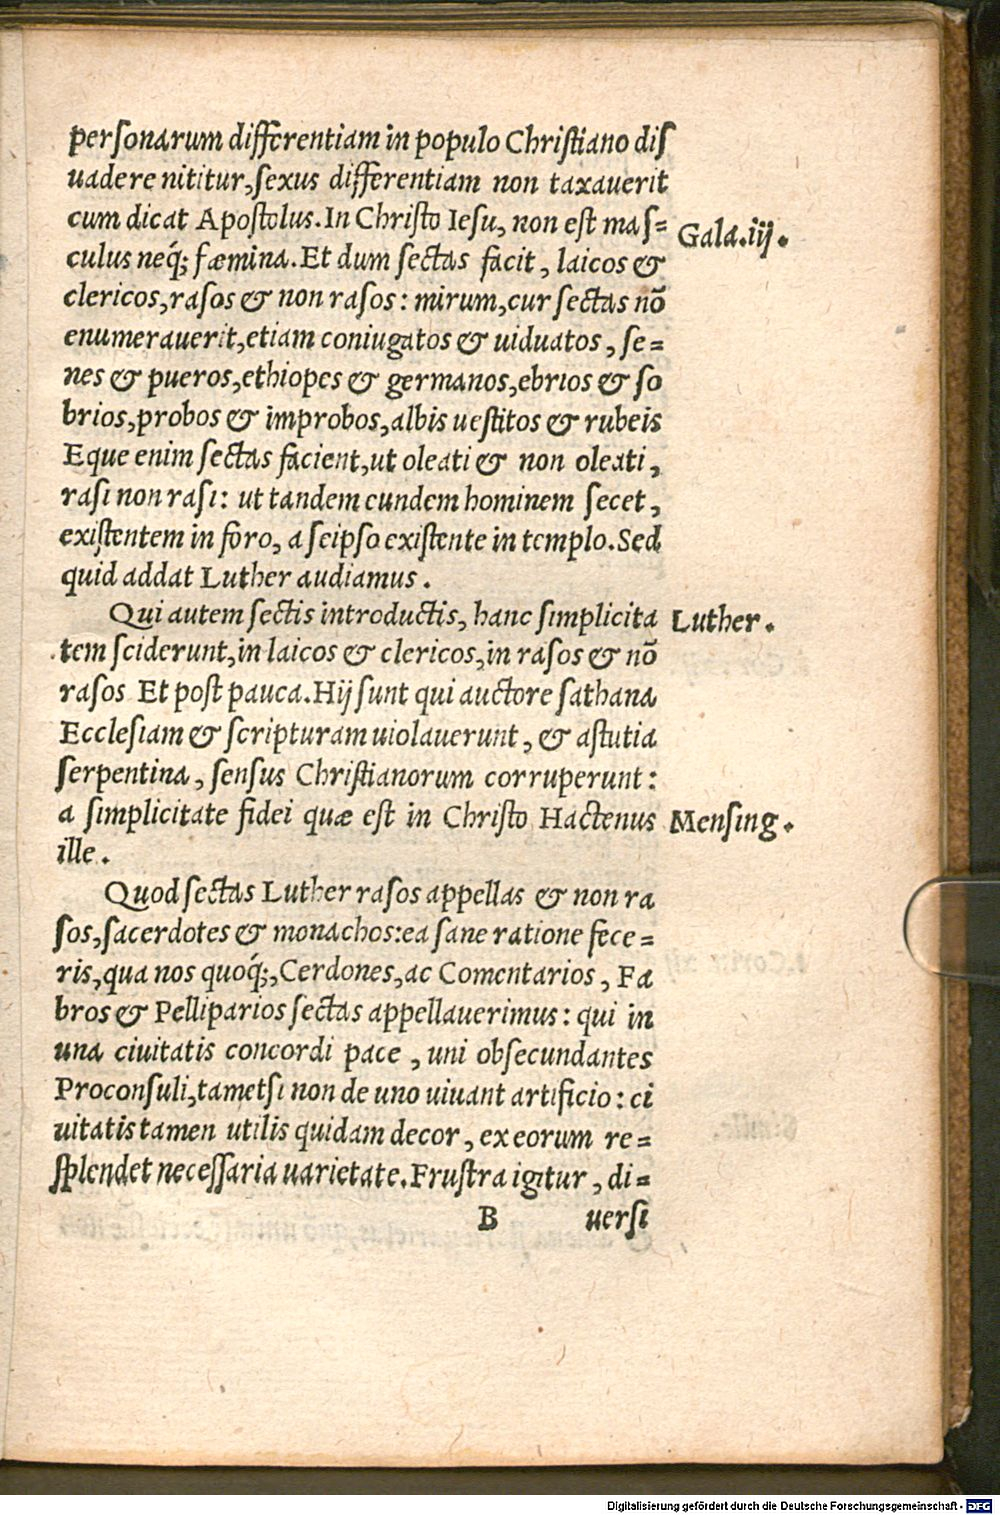 perſonarum differentiam in populo Chriſtiano diſ
uadere nititur, ſexus differentiam non taxauerit
cum dicat Apoſtolus. In Chriſto Ieſu, non eſt maſ=
Gala. iij.
culus neq́; fæmina. Et dum ſectas facit, laicos &
clericos, raſos & non raſos: mirum, cur ſectas nō
enumerauerit, etiam coniugatos & uiduatos, ſe=
nes & pueros, ethiopes & germanos, ebrios & ſo
brios, probos & improbos, albis ueſtitos & rubeis
Eque enim ſectas facient, ut oleati & non oleati,
raſi non raſi: ut tandem eundem hominem ſecet,
exiſtentem in foro, a ſeipſo exiſtente in templo. Sed
quid addat Luther audiamus.
Qui autem ſectis introductis, hanc ſimplicita
Luther.
tem ſciderunt, in laicos & clericos, in raſos & nō
raſos Et poſt pauca. Hij ſunt qui auctore ſathana
Eccleſiam & ſcripturam uiolauerunt, & aſtutia
ſerpentina, ſenſus Chriſtianorum corruperunt:
a ſimplicitate fidei quæ eſt in Chriſto Hactenus
Menſing.
ille.
Quod ſectas Luther raſos appellas & non ra
ſos, ſacerdotes & monachos: ea ſane ratione fece=
ris, qua nos quoq́;, Cerdones, ac Comentarios, Fa
bros & Pelliparios ſectas appellauerimus: qui in
una ciuitatis concordi pace, uni obſecundantes
Proconſuli, tametſi non de uno uiuant artificio: ci
uitatis tamen utilis quidam decor, ex eorum re=
ſplendet neceſſaria uarietate. Fruſtra igitur, di=
B uerſi
Digitalisierung gefördert durch die Deutsche Forschungsgemeinschaft - DFG